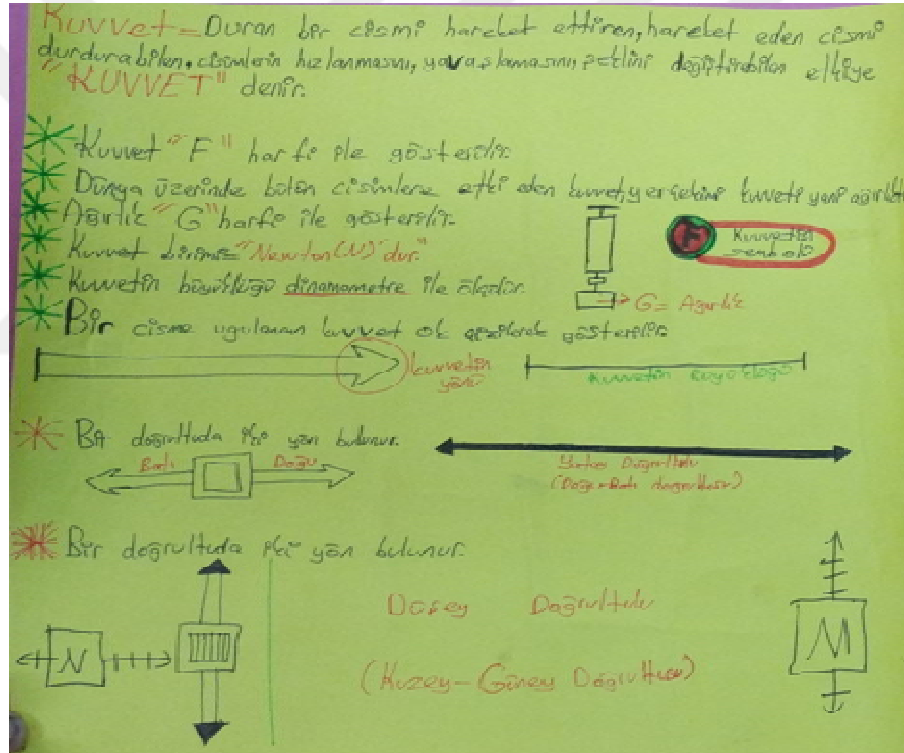 Kuvvet = Duran bir cismi hareket ettiren, hareket eden cismi
durdurabilen, cisimlerin hızlanmasını, yavaşlamasını, şeklini değiştirebilen etkiye
"KUVVET" denir.
Kuvvet "F" harfi ile gösterilir.
Dünya üzerinde bütün cisimlere etki eden kuvvet yerçekimi kuvveti yani
Ağırlık "G" harfi ile gösterilir.
Kuvvet birimi "Newton(N)'dur."
Kuvvetin büyüklüğü dinamometre ile ölçülür.
F Kuvvetin
sembolü
G= Ağırlık
Bir cisme uygulanan kuvvet ok çizilerek gösterilir.
kuvvetin
yönü
Kuvvetin büyüklüğü
Bir doğrultuda iki yön bulunur.
Batı Doğu
Doğrultulu
(Doğu-Batı doğrultusu)
Bir doğrultuda iki yön bulunur.
Düşey Doğrultulu
N
M
(Kuzey-Güney Doğrultusu)